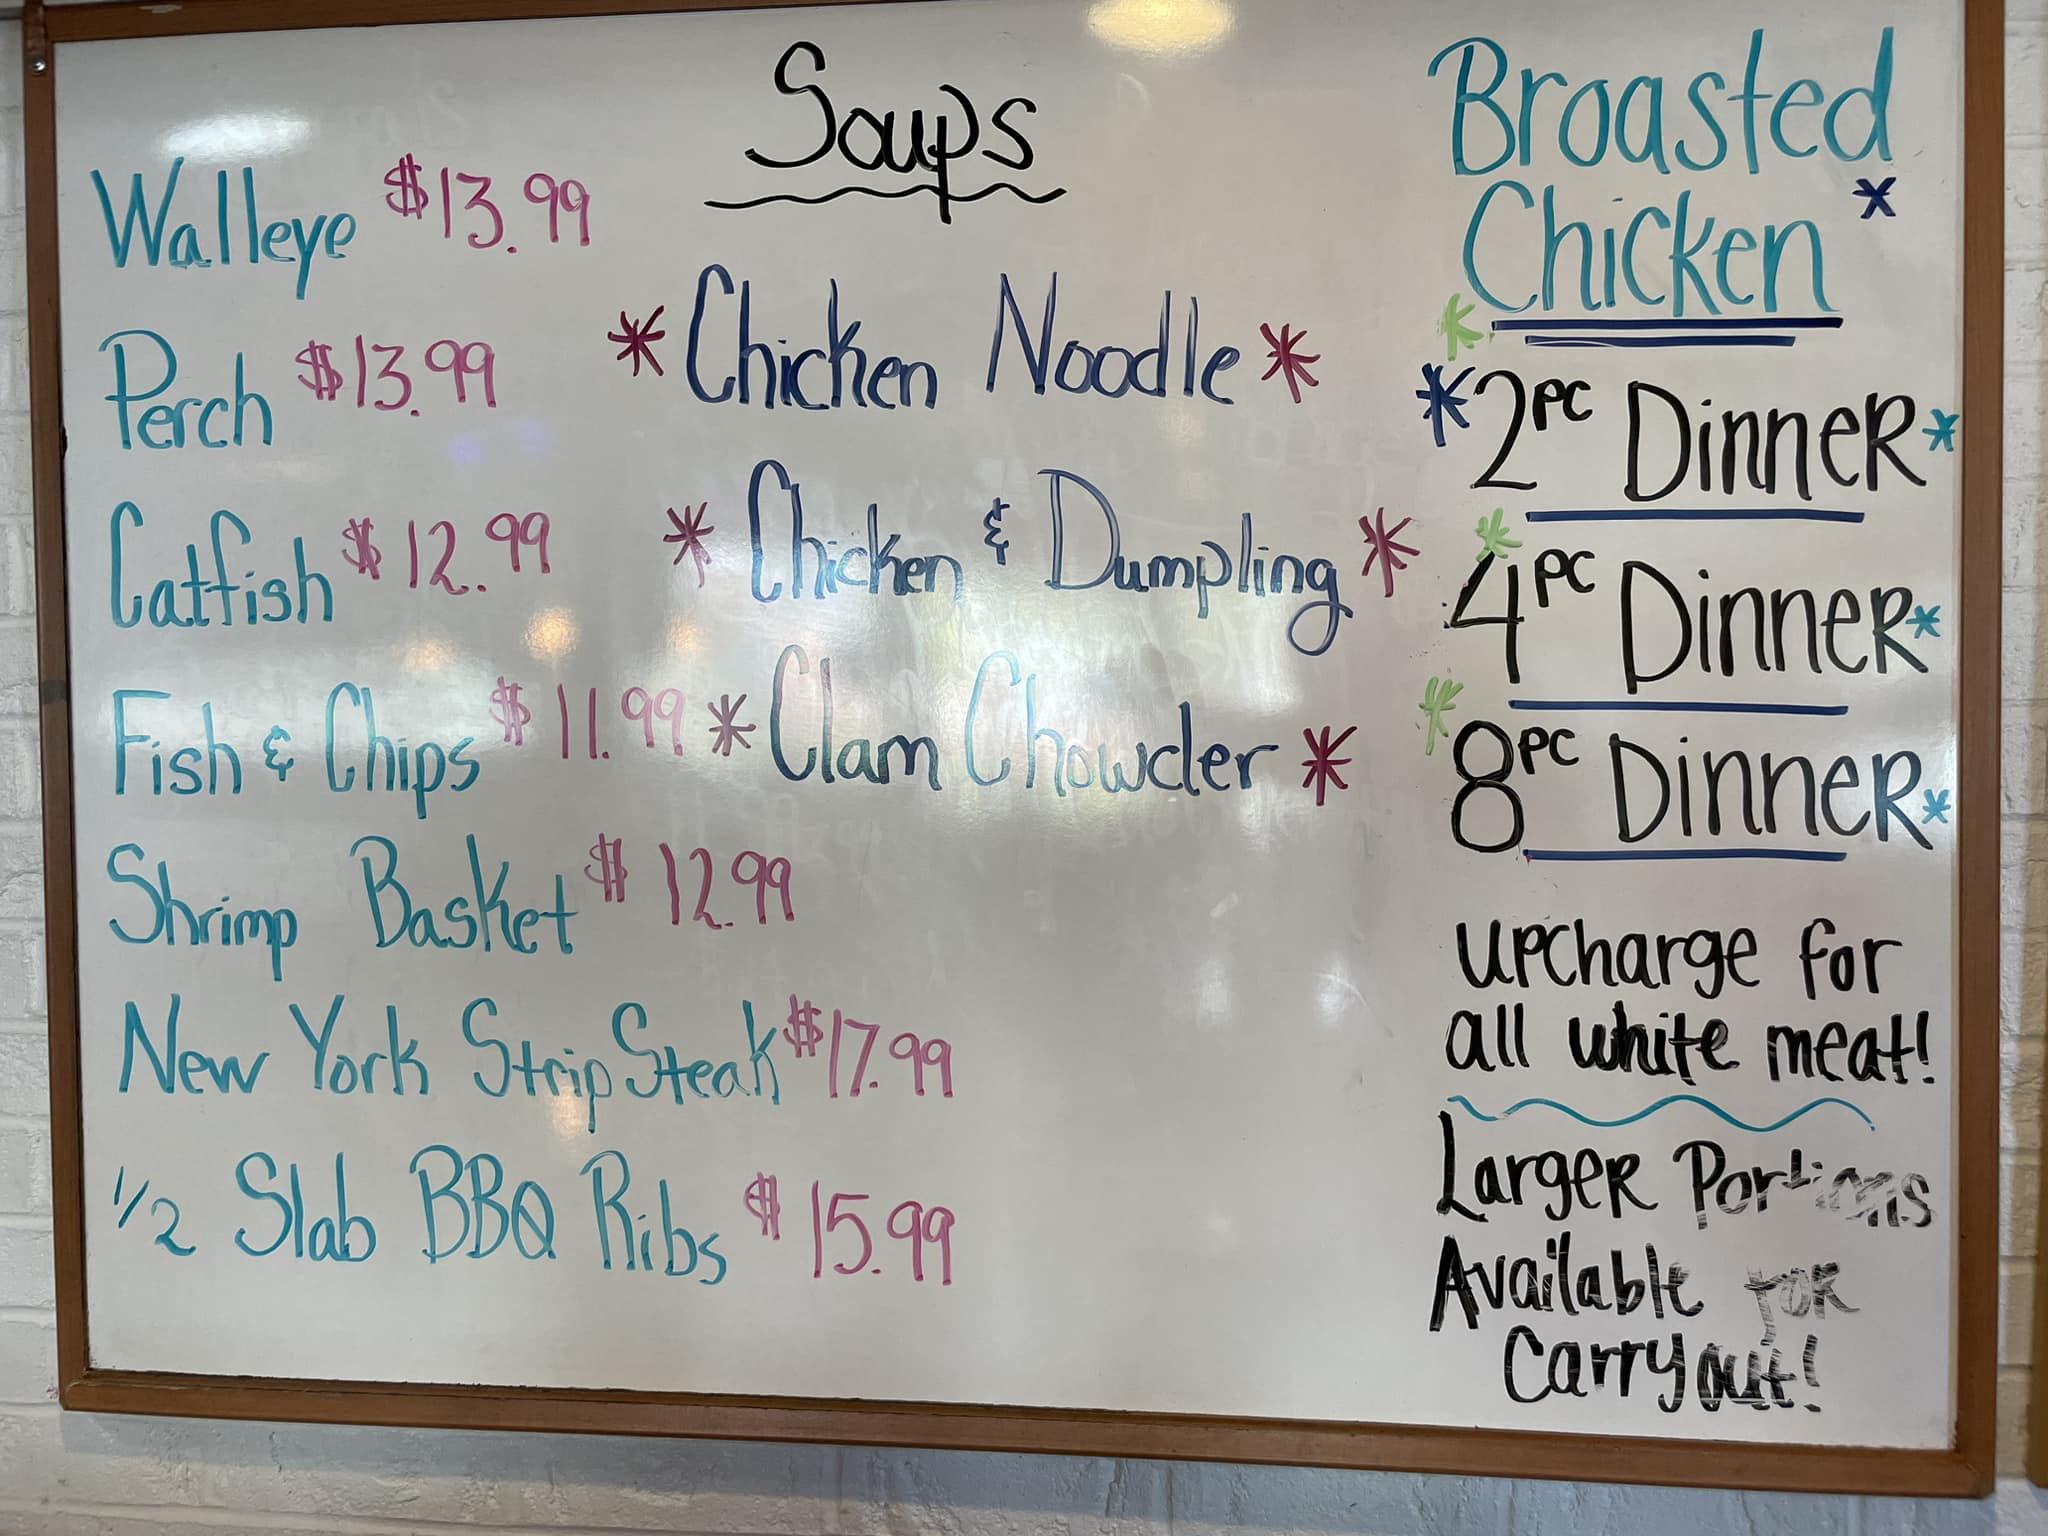 Walleye $13.99
Perch $13.99
Catfish $12.99
Fish & Chips $11.99
Shrimp Basket $12.99
New York Strip Steak $17.99
1/2 Slab BBQ Ribs $15.99
Soups
* Chicken Noodle *
* Chicken & Dumpling *
* Clam Chowder *
Broasted
Chicken *
* 2pc Dinner *
* 4pc Dinner *
* 8pc Dinner *
upcharge for
all white meat!
Larger Portions
Available for
Carryout!